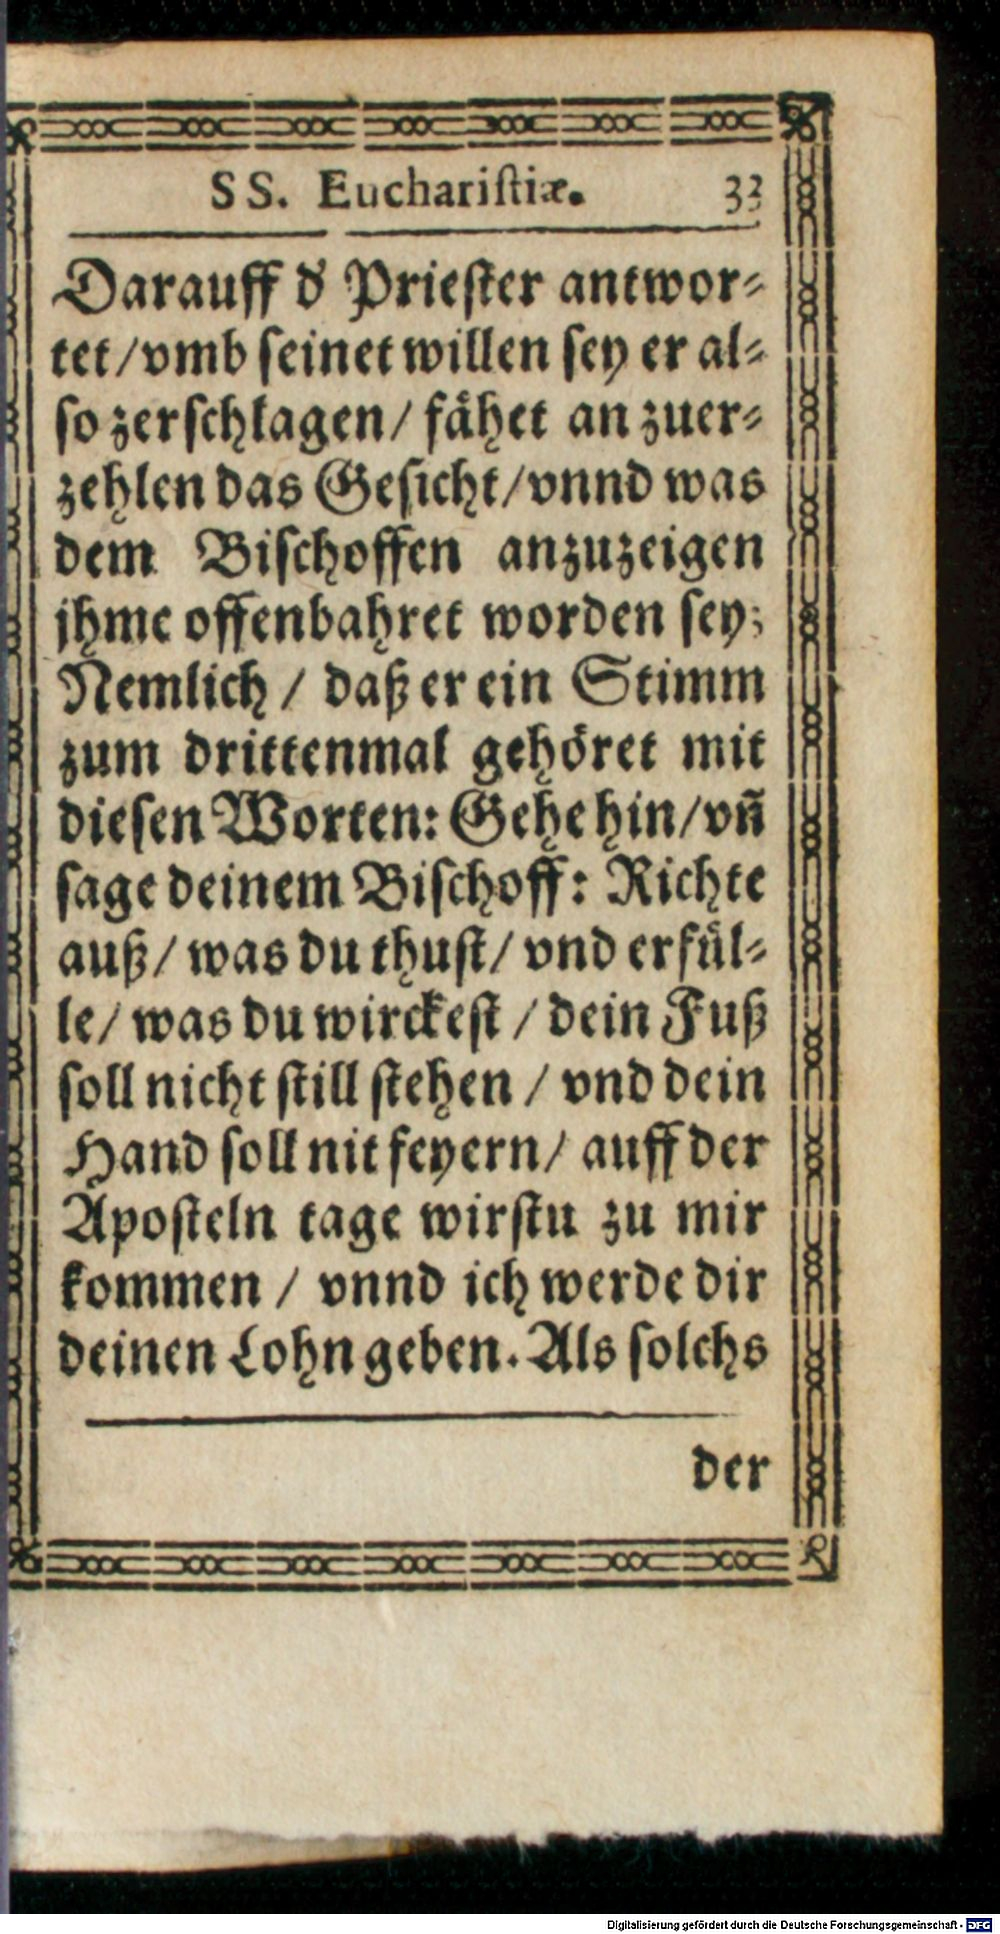 SS. Euchariſtiæ. 33
Darauff d' Prieſter antwor⸗
tet/vmb ſeinet willen ſey er al⸗
ſo zerſchlagen/ fåhet an zuer⸗
zehlen das Geſicht/vnnd was
dem Biſchoffen anzuzeigen
jhme offenbahret worden ſey;
Nemlich / daß er ein Stimm
zum drittenmal gehöret mit
dieſen Worten: Gehe hin/vñ
ſage deinem Biſchoff: Richte
auß/ was du thuſt/ vnd erfül⸗
le/ was du wirckeſt / dein Fuß
ſoll nicht ſtill ſtehen / vnd dein
Hand ſoll nit feyern/ auff der
Apoſteln tage wirſtu zu mir
kommen / vnnd ich werde dir
deinen Lohn geben. Als ſolchs
der
Digitalisierung gefördert durch die Deutsche Forschungsgemeinschaft - DFG